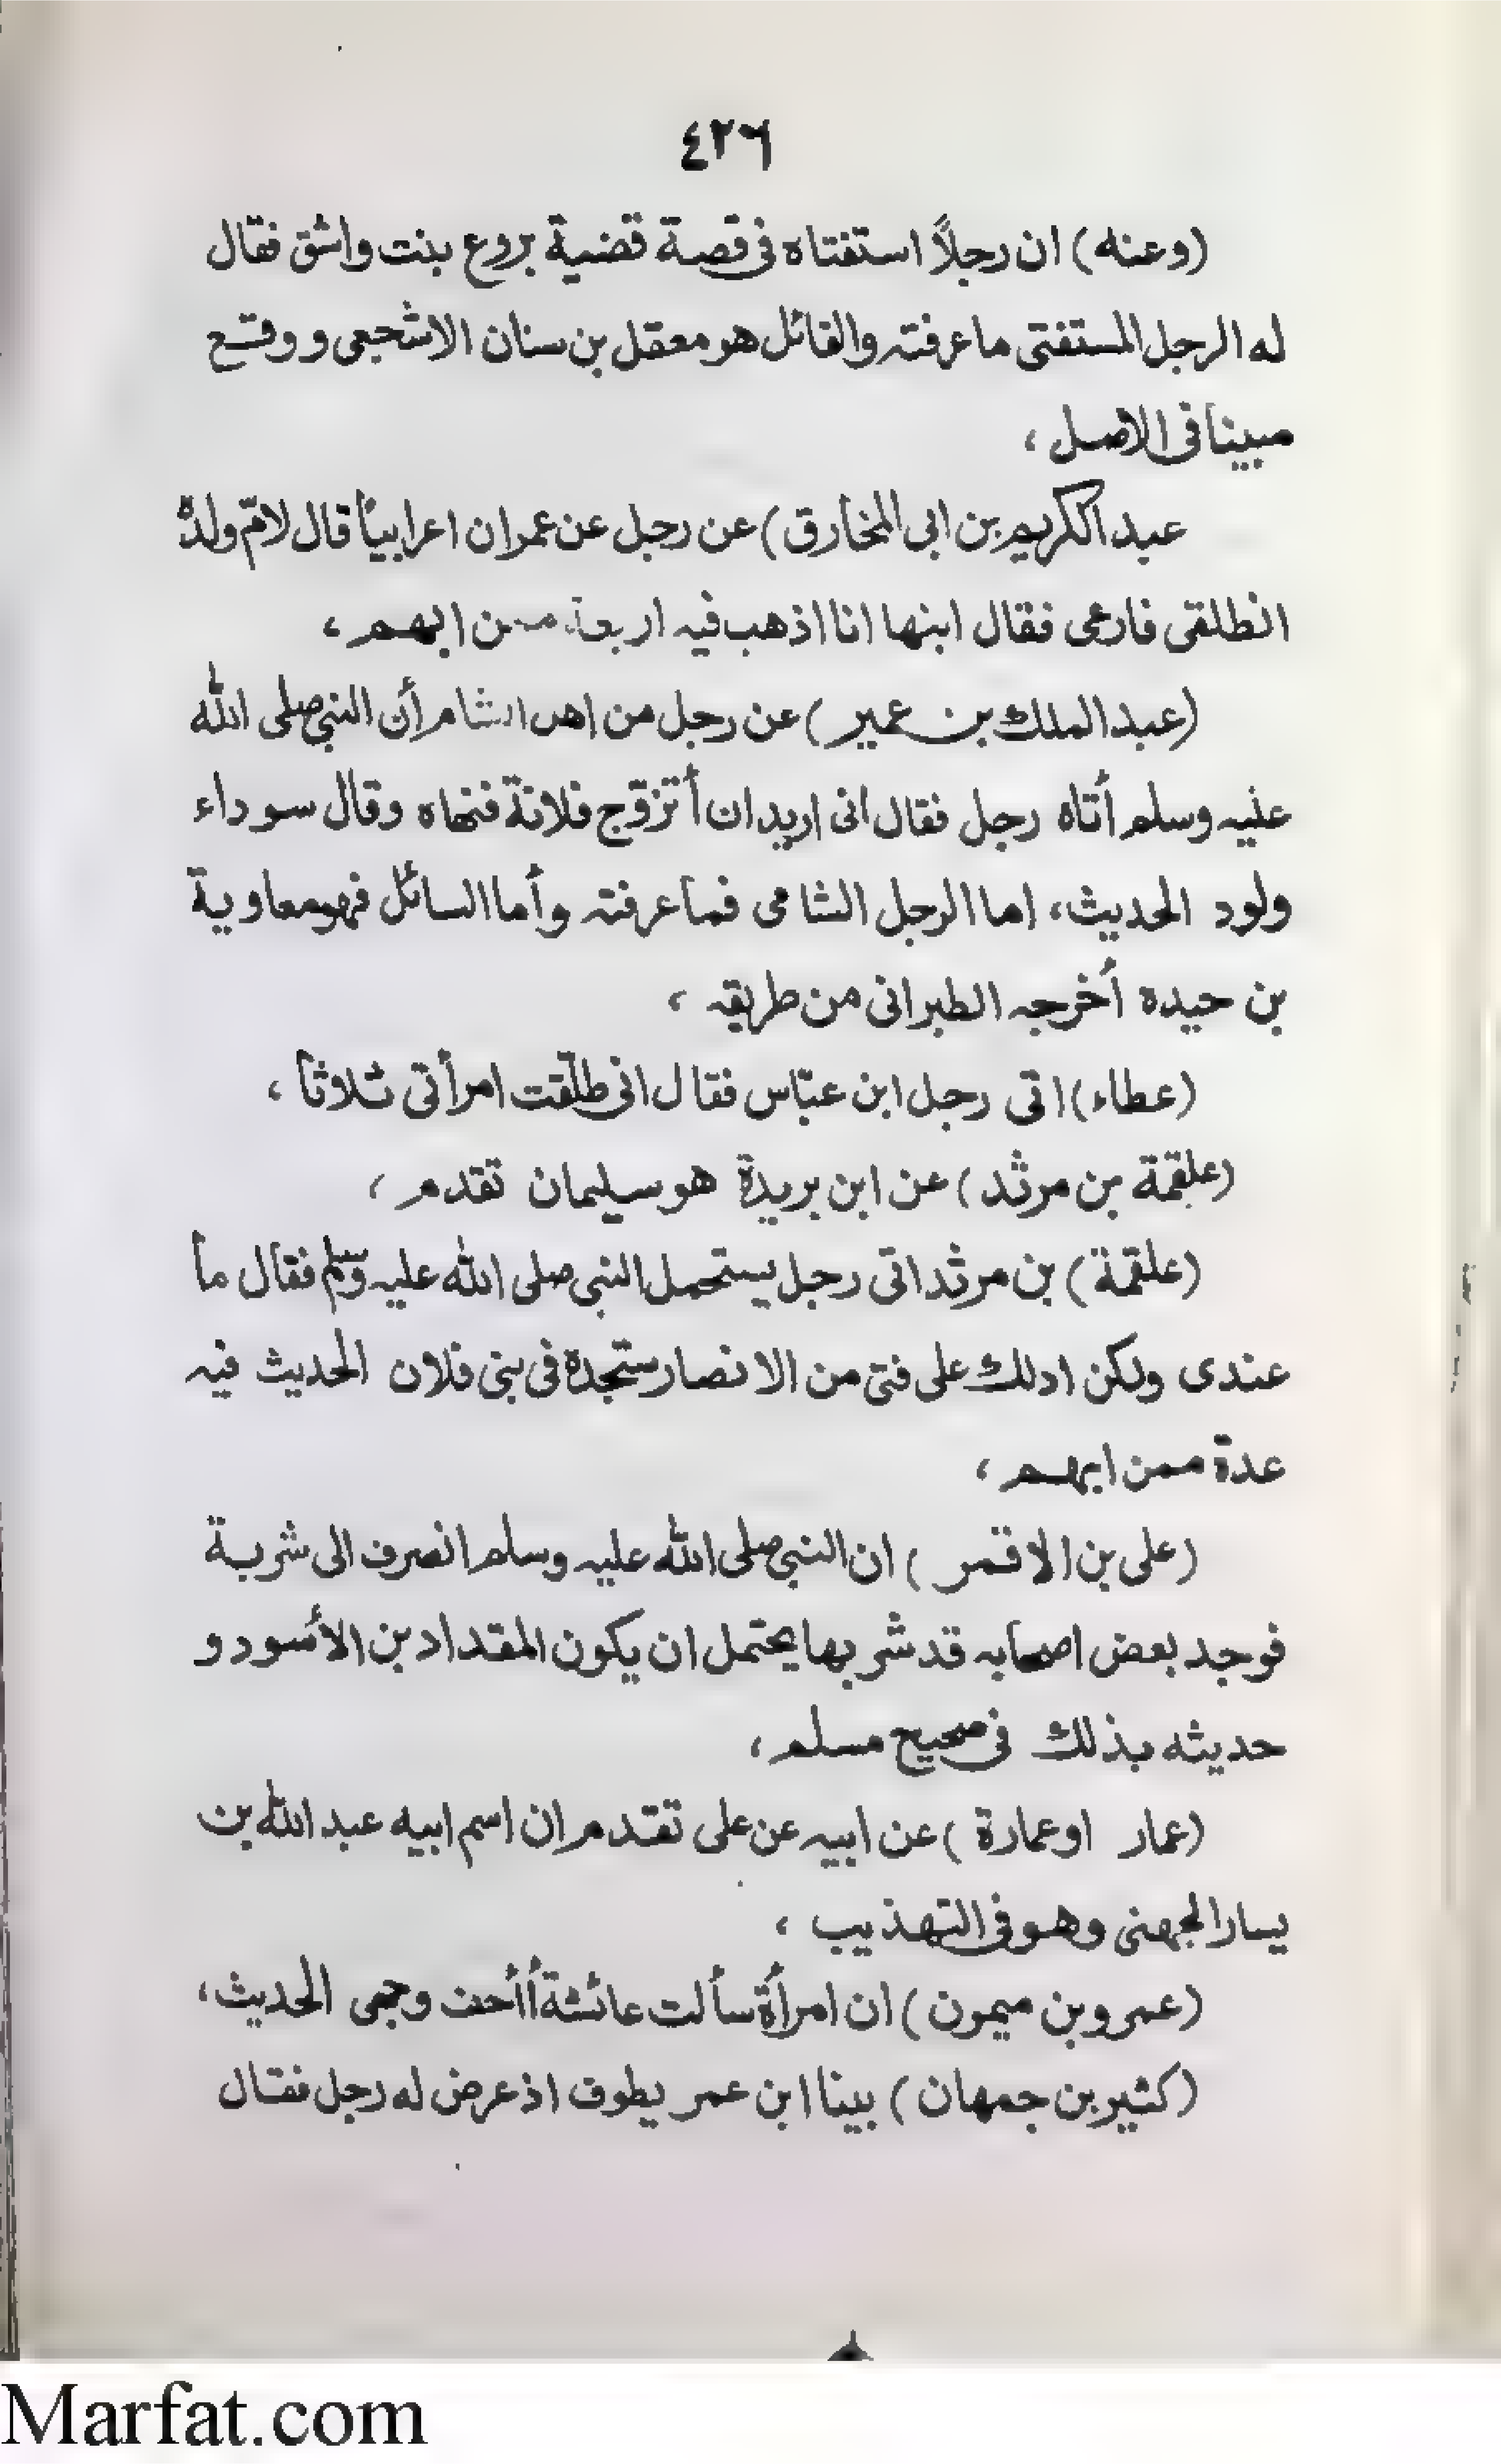 ٤٢٦
(وعنه) ان رجلاً استفتاه فى قصة قضية بروع بنت واشق فقال
له الرجل المستفتى ما عرفته والقائل هو معقل بن سنان الاشجعى و وقع
مبينا فى الاصل ،
عبد الكريم بن ابى المخارق) عن رجل عن عمران اعرابياً قال لامّ ولدهٖ
انطلقى فارعى فقال ابنها انا اذهب فيه اربعة ممن ابهم ،
(عبد الملك بن عمير) عن رجل من اهل الشام أن النبى صلى الله
عليه وسلم أتاه رجل فقال انى اريد ان أتزوّج فلانة فنهاه وقال سوداء
ولود الحديث، اما الرجل الشامى فما عرفته وأما السائل فهو معاوية
بن حيدة أخرجه الطبرانى من طريقه ،
(عطاء) اتى رجل ابن عبّاس فقال انى طلّقت امرأتى ثلاثا ،
(علقمة بن مرثد) عن ابن بريدة هو سليمان تقدم ،
(علقمة) بن مرثد اتى رجل يستحمل النبى صلى الله عليه وسلم فقال ما
عندى ولكن ادلك على فتى من الانصار ستجدة فى بنى فلان الحديث فيه
عدة ممن ابهم ،
(على بن الاقمر) ان النبى صلى الله عليه وسلم انصرف الى شربة
فوجد بعض اصحابه قد شربها يحتمل ان يكون المقداد بن الأسود و
حديثه بذلك فى صحيح مسلم ،
(عمار اوعمارة) عن ابيه عن على تقدم ان اسم ابيه عبد الله بن
يسار الجهنى وهو فى التهذيب ،
(عمرو بن ميمون) ان امرأة سألت عائشة أأحف وجهى الحديث ،
(كثير بن جمهان) بينا ابن عمر يطوف اذ عرض له رجل فقال
Marfat.com